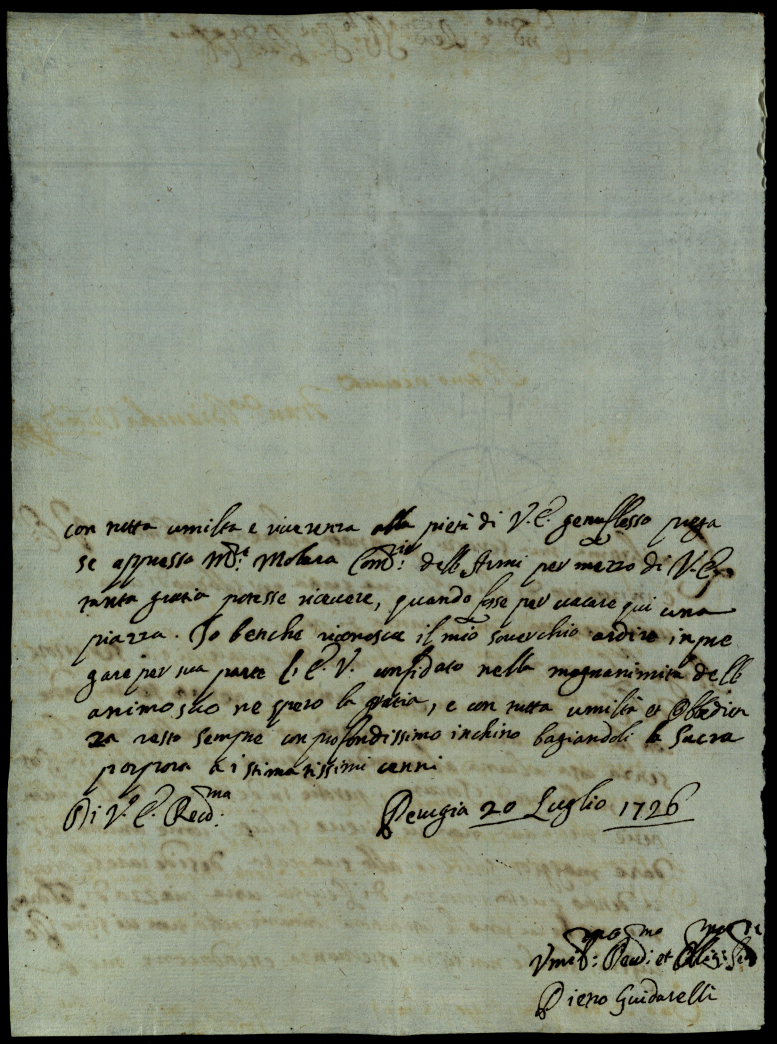 con tutta umiltà e riverenza alla pietà di V. E. genuflesso prega
se appresso Mons.re Molara Com.rio dell'Armi per mezzo di V. E.
tanta gratia potesse ricevere, quando fosse per vacare qui una
piazza. Io benche riconosca il mio soverchio ardire in pre
gare per sua parte l'E. V. confidato nella magnanimità dell
animo suo ne spero la gratia, e con tutta umiltà et obbedien
za resto sempre con profondissimo inchino bagiandoli la Sacra
porpora a i stimatissimi cenni
Di V.a E. Reud.ma
Perugia 20 Luglio 1726
Piero Guidarelli